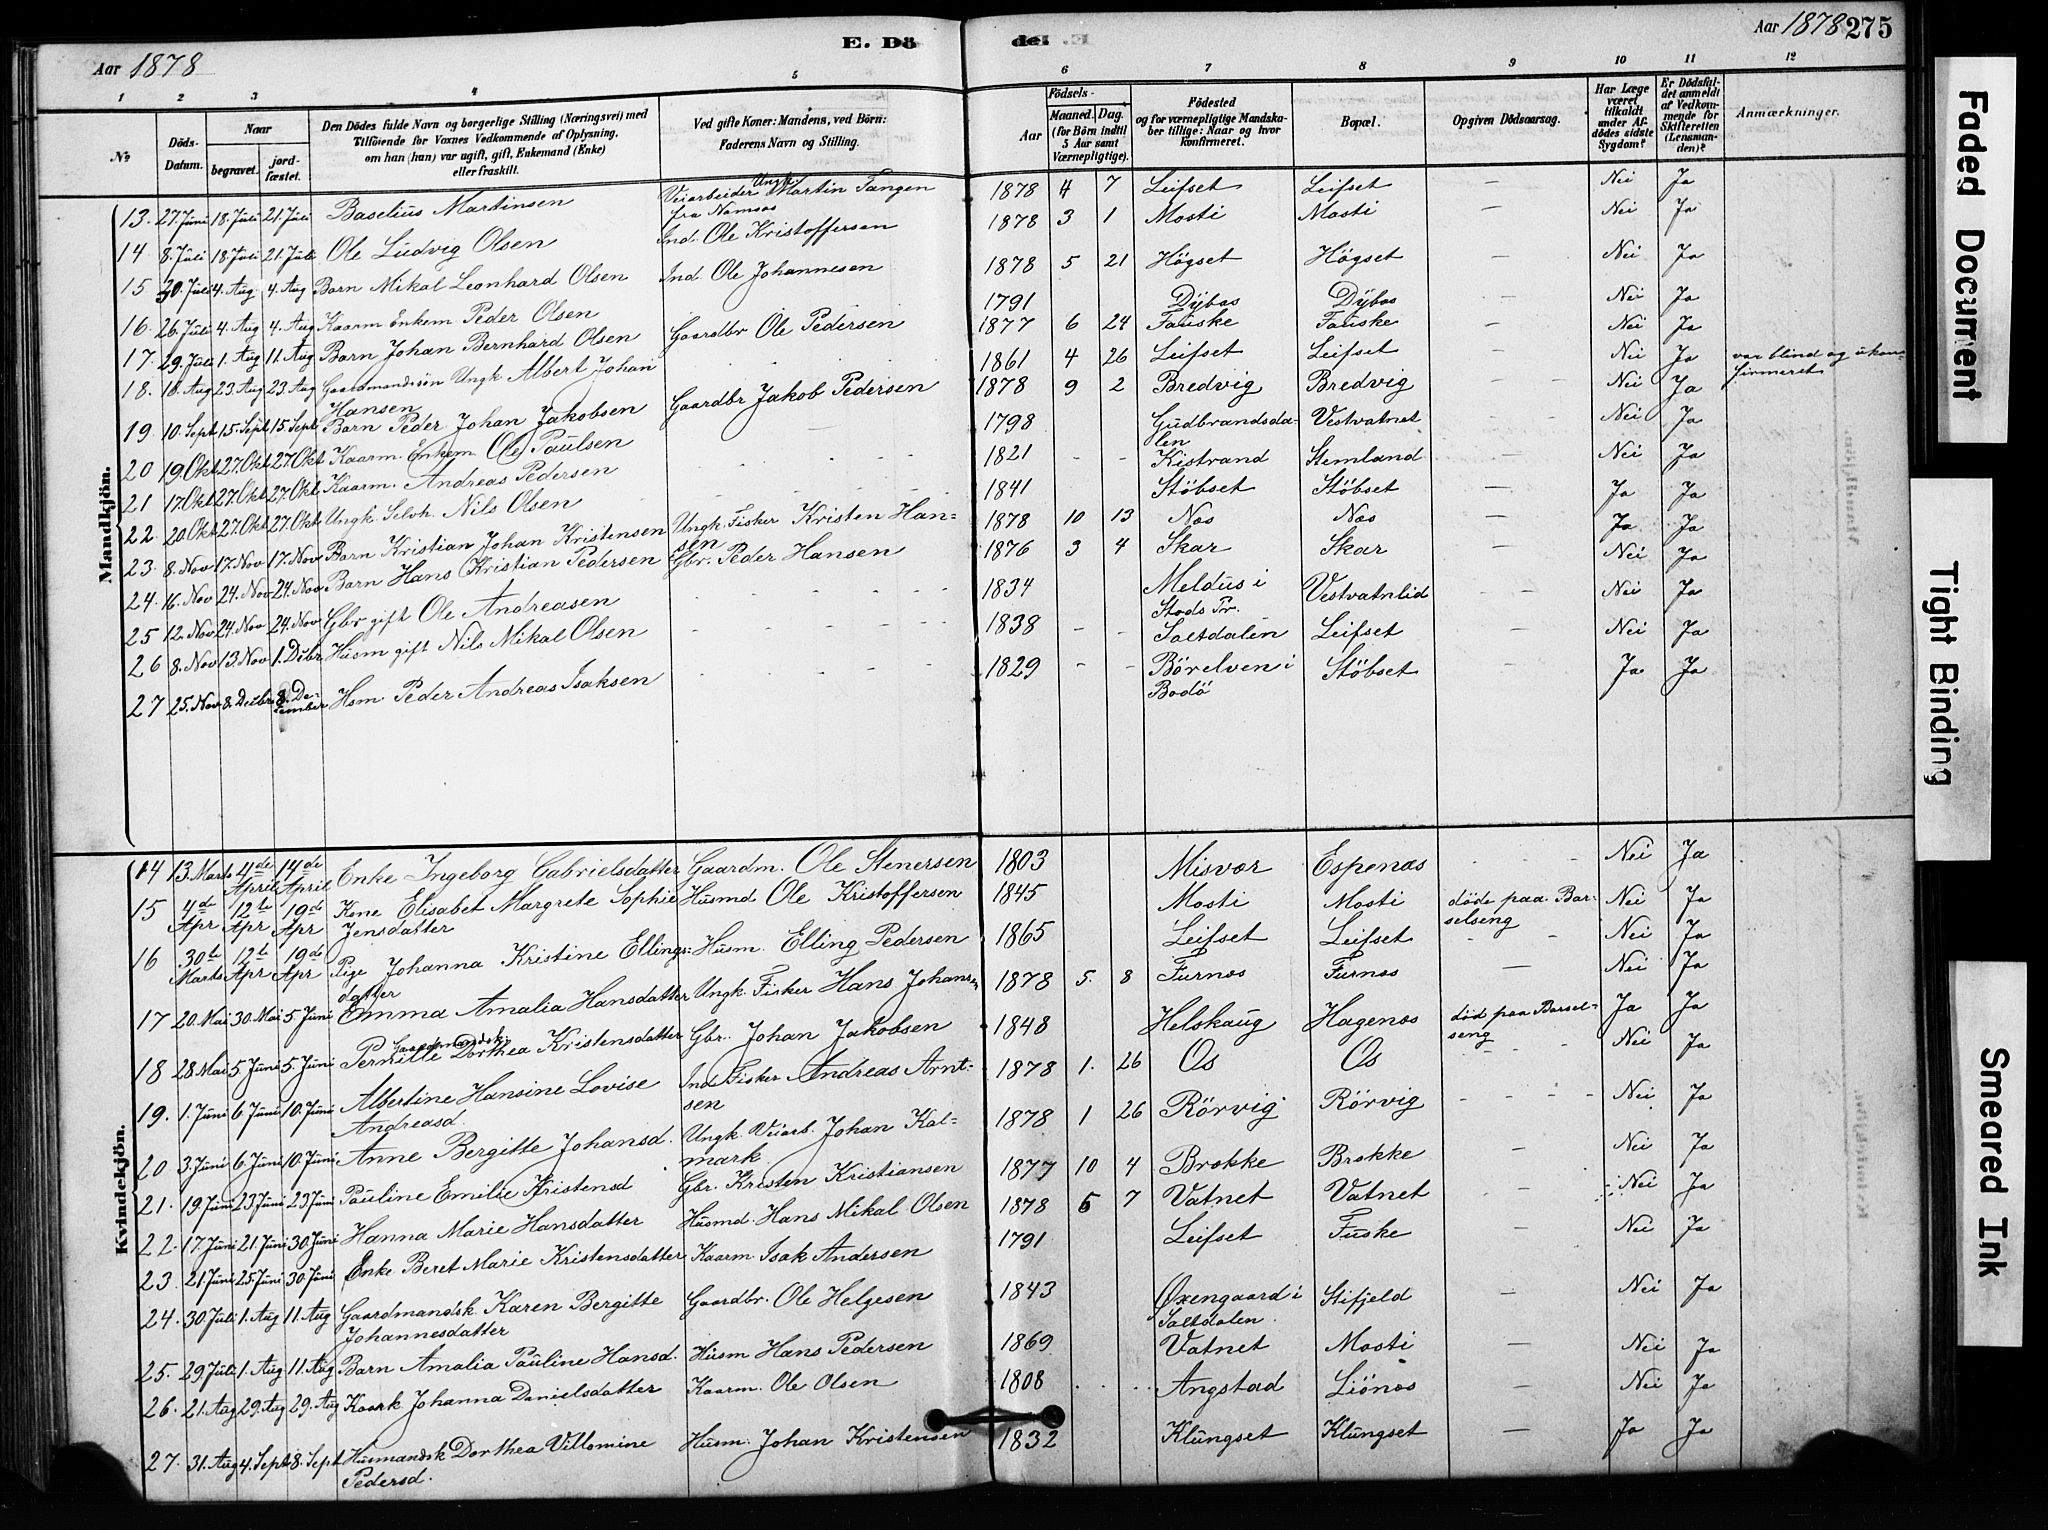 E. Dö
de.
Aar 1878
Aar 1878 275
1 2 3 4 5 6 7 8 9 10 11 12
No
Döds-Datum.
Naar
begravet.
jord-fæstet.
Den Dödes fulde Navn og borgerlige Stilling (Næringsvei) med
Tilföiende for Voxnes Vedkommende af Oplysning,
om han (hun) var ugift, gift, Enkemand (Enke)
eller fraskilt.
Ved gifte Koner: Mandens, ved Börn:
Faderens Navn og Stilling.
Födsels-
Aar
Maaned. Dag.
(for Börn indtil
5 Aar samt
Værnepligtige).
Födested
og for værnepligtige Mandska-
ber tillige: Naar og hvor
konfirmeret.
Bopæl.
Opgiven Dödsaarsag.
Har Læge
været
tilkaldt
under Af-
dödes sidste
Sygdom?
Er Dödsfal-
det anmeldt
af Vedkom-
mende for
Skifteretten
(Lensman-
den)?
Anmærkninger.
Mandkjön.
13. 27. Juni 18. Juli 21. Juli Baselius Martinsen Veiarbeider Ungk. Martin Tangen fra Namsos 1878 4 7 Leifset Leifset — Nei Ja
14 8. Juli 18. Juli 21. Juli Ole Ludvig Olsen Ind. Ole Kristoffersen 1878 3 1 Mosti Mosti — Nei Ja
15 20. Juli 4. Aug 4. Aug Barn Mikal Leonhard Olsen Ind. Ole Johannesen 1878 5 21 Högset Högset — Nei Ja
16. 26. Juli 4. Aug 4. Aug Kaarm Enkem Peder Olsen 1791 Dÿbos Dÿbos — Nei Ja
17. 29. Juli 1. Aug 11. Aug Barn Johan Bernhard Olsen Gaardbr Ole Pedersen 1877 6 24 Fauske Fauske — Nei Ja
18. 18. Aug 23. Aug 23. Aug Gaardmandssön Ungk Albert Johan Hansen 1861 4 26 Leifset Leifset — Nei Ja var blind og ukon-
firmeret
19 10. Sept 15. Sept 15. Sept Barn Peder Johan Jakobsen Gaardbr Jakob Pedersen 1878 9 2 Bredvig Bredvig — Nei Ja
20 19. Okt 27. Okt 27. Okt Kaarm. Enkem Ole Paulsen — 1798 Gudbrandsda-
len Vestvatnet — Nei Ja
21 17. Okt 27. Okt 27. Okt Kaarm. Andreas Pedersen 1821 - - Kistrand Stemland — Nei Ja
22 20. Okt 27. Okt 27. Okt Ungk. Selvh. Nils Olsen 1841 Stöbset Stöbset — Ja Ja
23. 8. Nov 17. Nov 17. Nov Barn Kristian Johan Kristensen Ungk. Fisker Kristen Han-
sen 1878 10 13 Nos Nos — Ja Ja
24. 16. Nov 24. Nov 24. Nov Barn Hans Kristian Pedersen Gbr. Peder Hansen 1876 3 4 Skar Skar — Nei Ja
25 12. Nov 24. Nov 24. Nov Gbr gift Ole Andreasen 1834 Meldus i
Stods Pr. Vestvatnlid — Nei Ja
26 8. Nov 13. Nov 1. Debr Husm gift Nils Mikal Olsen 1838 - - Saltdalen Leifset — Nei Ja
27 25. Nov 8. Decbr 8. De-
cember Hsm Peder Andreas Isaksen 1829 - - Börelven i
Bodö Stöbset — Ja Ja
Kvindekjön.
14 13. Marts 4de April 14de April Enke Ingeborg Gabrielsdatter Gaardm. Ole Stenersen 1803 Misvor Espenos Nei Ja
15 4de Apr 12te Apr 19de Apr Kone Elisabet Margrete Sophie
Jensdatter Husmd Ole Kristoffersen 1845 Mosti Mosti döde paa Bar-
selseng Nei Ja
16 30te Marts 12te Apr 19de Apr Pige Johanna Kristine Ellings-
datter Husm. Elling Pedersen 1865 Leifset Leifset Nei Ja
17 20. Mai 30. Mai 5. Juni Emma Amalia Hansdatter Ungk. Fisker Hans Johansen 1878 5. 8 Furnos Furnos — Nei Ja
18 28 Mai 5. Juni 5. Juni Gaardmandsk. Pernille Dorthea Kristensdatter Gbr. Johan Jakobsen 1848 Helskaug Hagenos död paa Barsel-
seng Ja Ja
19. 1. Juni 6. Juni 10. Juni Albertine Hansine Lovise
Andreasd. Ind. Fisker Andreas Arnt-
sen 1878 1. 26 Os Os Nei Ja
20 3. Juni 6. Juni 10. Juni Anne Bergitte Johansd. Ungk. Veiarb. Johan Kal-
mark 1878 1 26 Rörvig Rörvig Nei Ja
21. 19. Juni 23 Juni 23 Juni Pauline Emilie Kristensd Gbr. Kristen Kristiansen 1877 10 4 Brokke Brokke — Nei Ja
22. 17. Juni 21. Juni 30. Juni Hanna Marie Hansdatter Husmd. Hans Mikal Olsen 1878 5 7 Vatnet Vatnet — Nei Ja
23. 21 Juni 25 Juni 30. Juni Enke Beret Marie Kristensdatter Kaarm. Isak Andersen 1791 Leifset Fuske — Nei Ja
24. 30. Juli 1. Aug 11. Aug Gaardmandsk Karen Bergitte
Johannesdatter Gaardbr. Ole Helgesen 1843 Øxengaard i
Saltdalen. Stifjeld — Nei Ja
25. 29. Juli 1. Aug 11. Aug Barn Amalia Pauline Hansd. Husm Hans Pedersen 1869 Vatnet Mosti — Nei Ja
26. 21. Aug 29. Aug 29. Aug Kaark Johanna Danielsdatter Kaarm. Ole Olsen 1808 Angstad Liönos — Nei Ja
27. 31. Aug 4. Sept 8. Sept Husmandsk Dorthea Villomine
Pedersd. Husm. Johan Kristensen 1832 Klungset Klungset — Ja Ja
Faded Document
Tight Binding
Smeared Ink